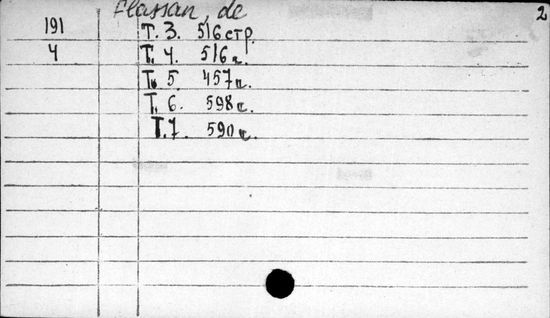 Flassan, de 2
191 Т. 3. 516 стр.
4 Т. 4. 516 с.
Т. 5. 457 с.
Т. 6. 598 с.
Т. 7. 590 с.